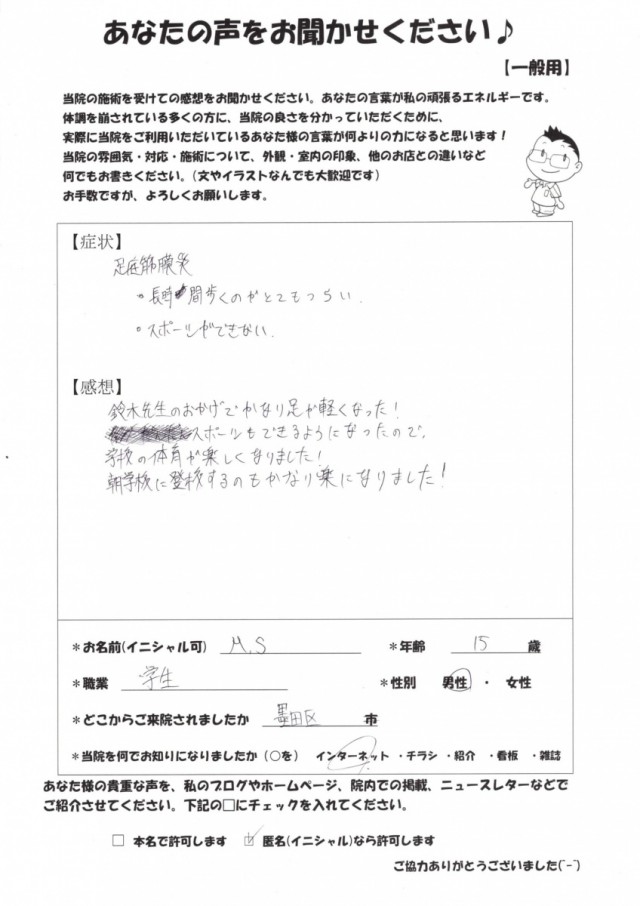 あなたの声をお聞かせください♪
【一般用】
当院の施術を受けての感想をお聞かせください。あなたの言葉が私の頑張るエネルギーです。
体調を崩されている多くの方に、当院の良さを分かっていただくために、
実際に当院をご利用いただいているあなた様の言葉が何よりの力になると思います！
当院の雰囲気・対応・施術について、外観・室内の印象、他のお店との違いなど
何でもお書きください。（文やイラストなんでも大歓迎です）
お手数ですが、よろしくお願いします。
【症状】
足底筋膜炎
・長時間歩くのがとてもつらい.
・スポーツができない.
【感想】
鈴木先生のおかげでかなり足が軽くなった！
スポーツもできるようになったので、
学校の体育が楽しくなりました！
朝学校に登校するのもかなり楽になりました！
＊お名前(イニシャル可) M.S ＊年齢 15 歳
＊職業 学生 ＊性別 男性 ・ 女性
＊どこからご来院されましたか 墨田区 市
＊当院を何でお知りになりましたか（○を） インターネット ・チラシ ・紹介 ・看板 ・雑誌
あなた様の貴重な声を、私のブログやホームページ、院内での掲載、ニュースレターなどで
ご紹介させてください。下記の□にチェックを入れてください。
□ 本名で許可します ☑ 匿名(イニシャル)なら許可します
ご協力ありがとうございました(^-^)